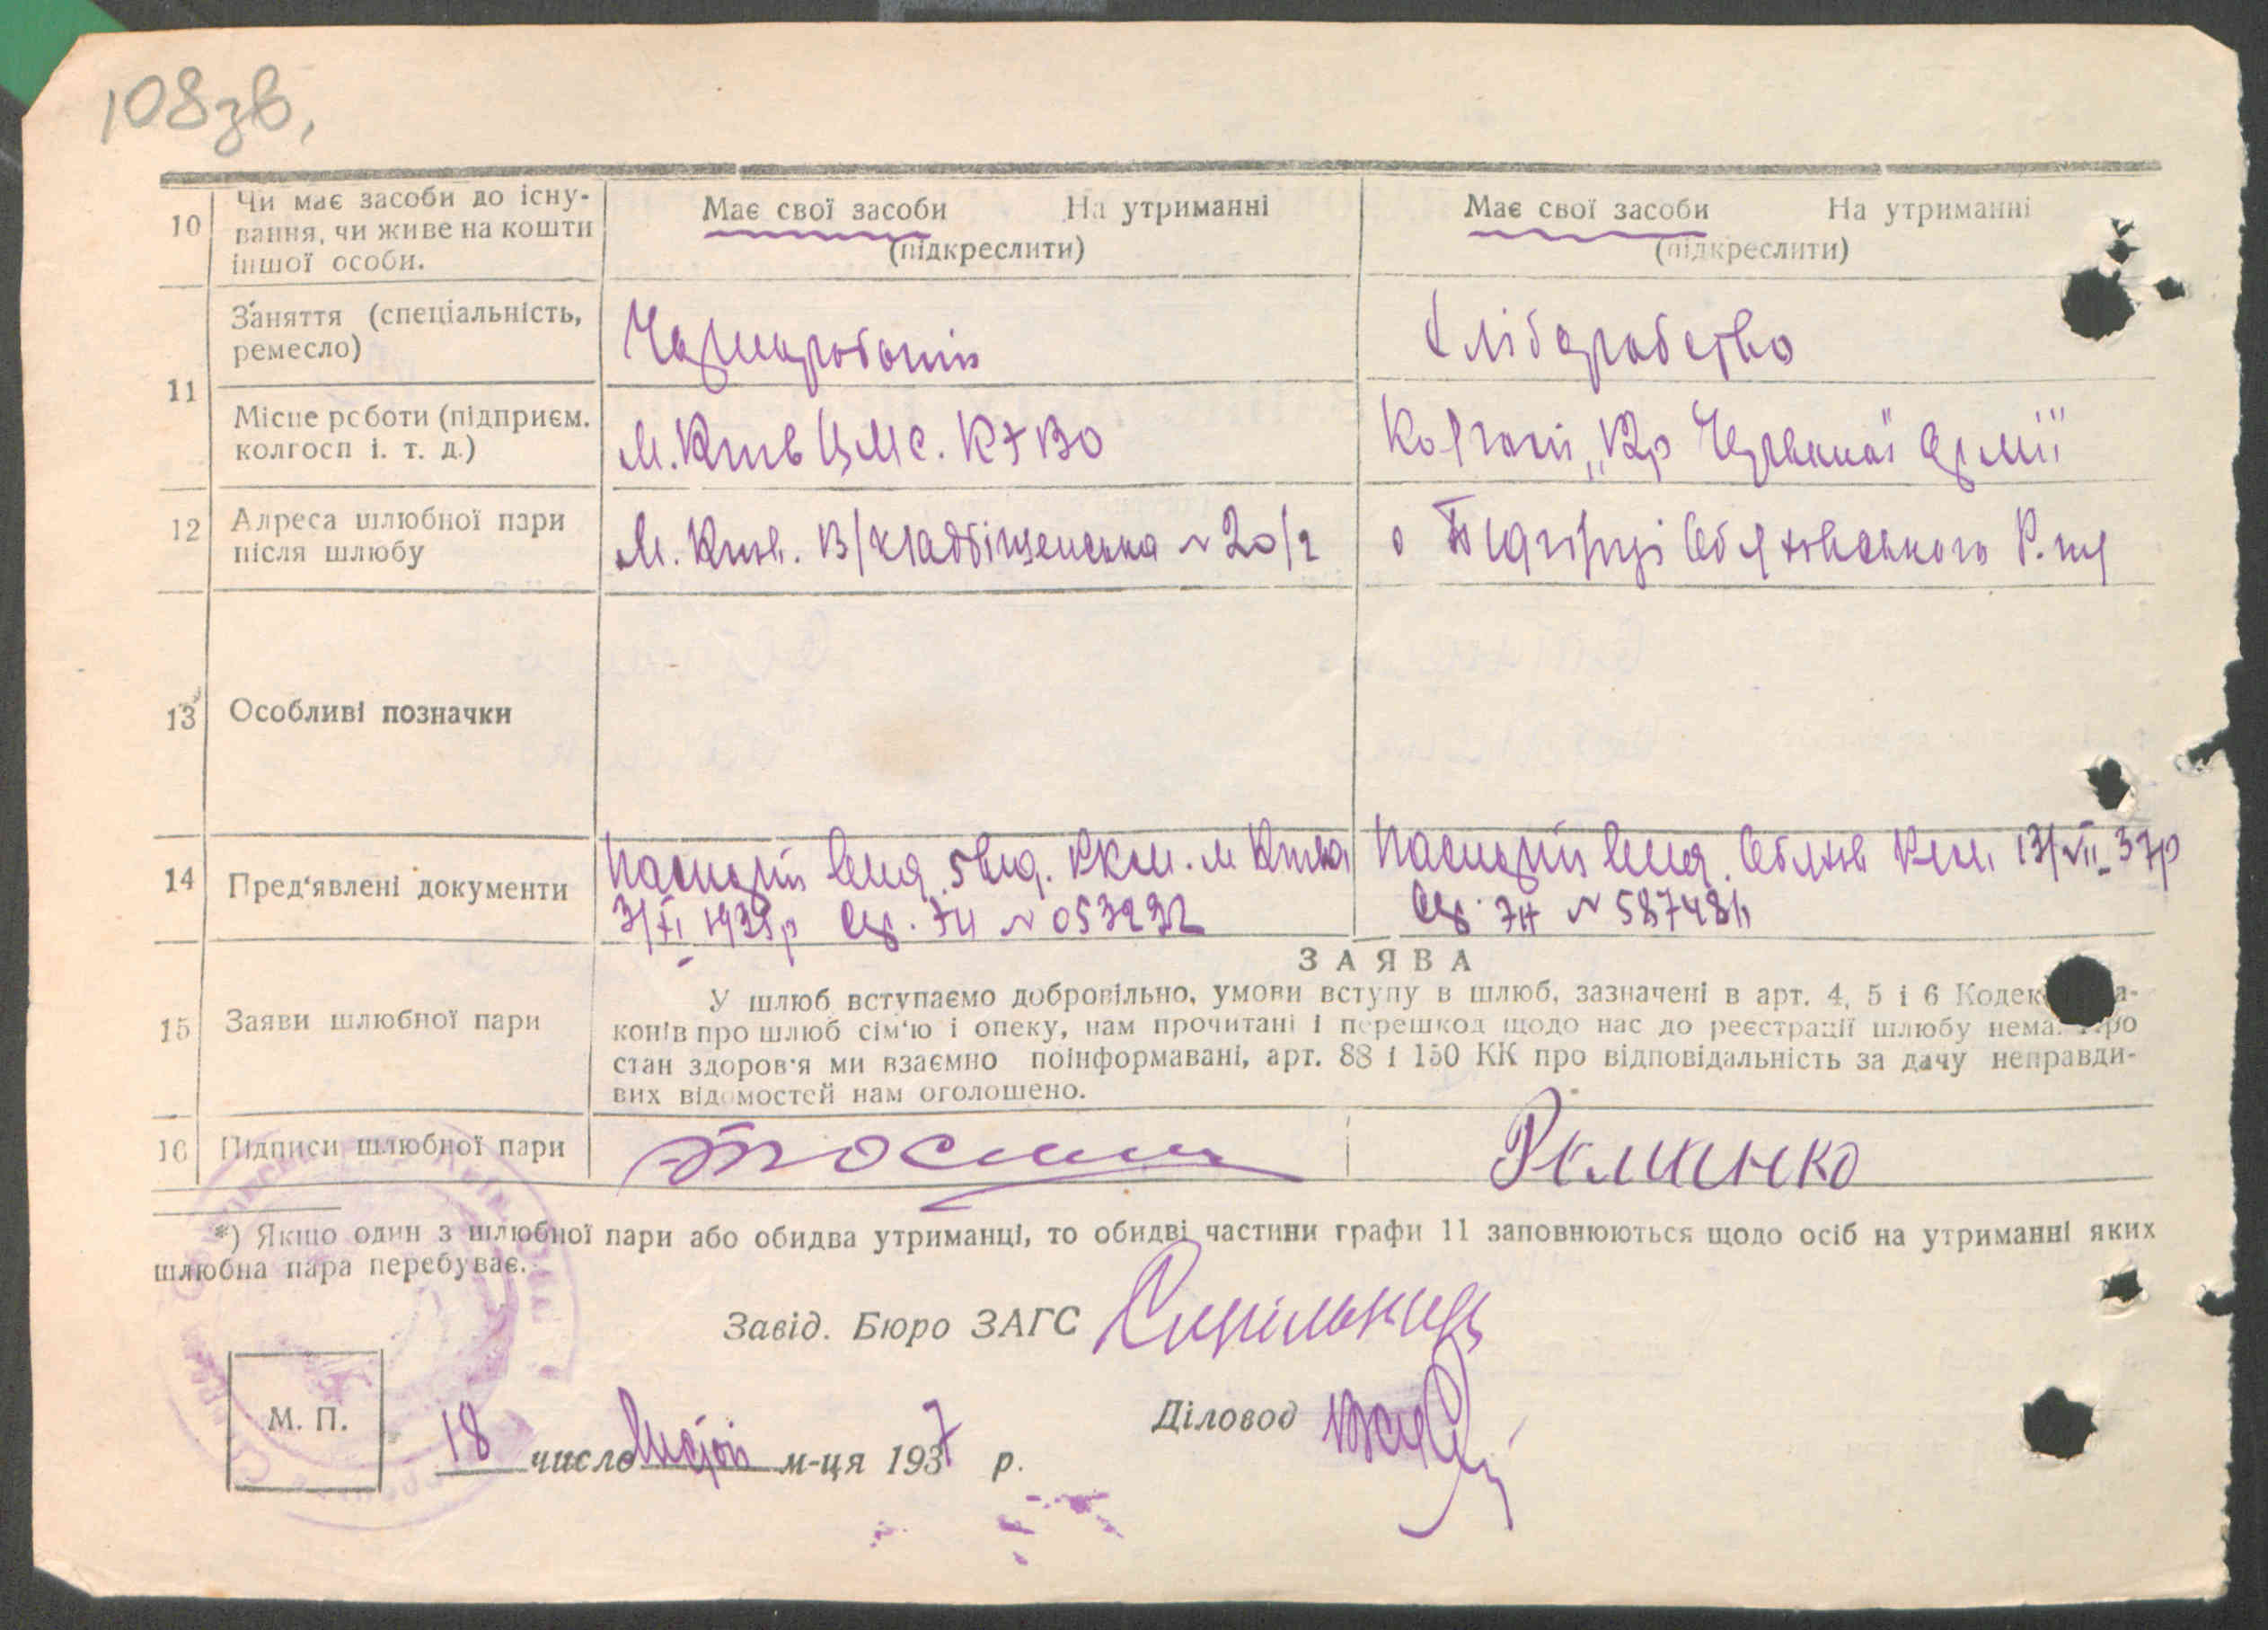 108зв,
10 Чи має засоби до існу-
вання, чи живе на кошти
іншої особи.
Має свої засоби На утриманні
(підкреслити)
Має свої засоби На утриманні
(підкреслити)
11
Заняття (спеціальність,
ремесло)
Чорноробочий
Хліборобство
Місце роботи (підприєм.
колгосп і. т. д.)
М. Київ
Колгосп „Кр Червоної Армії"
12 Адреса шлюбної пари
після шлюбу
М. Київ. В/кладбіщенська № 20/2
с Підгірці Обухівського Р. ну
13 Особливі позначки
14 Пред'явлені документи
Паспорт вид. 5 від. РКМ. м Київа
053232
Паспорт вид. Обухів РКМ 13/VII 37р
Сер. № 587484
15 Заяви шлюбної пари
ЗАЯВА
У шлюб вступаємо добровільно, умови вступу в шлюб, зазначені в арт. 4, 5 і 6 Кодек а-
конів про шлюб сім'ю і опеку, нам прочитані і перешкод щодо нас до реєстрації шлюбу нема. Про
стан здоров'я ми взаємно поінформавані, арт. 88 і 150 КК про відповідальність за дачу неправди-
вих відомостей нам оголошено.
16 Підписи шлюбної пари
*) Якщо один з шлюбної пари або обидва утриманці, то обидві частини графи 11 заповнюються щодо осіб на утриманні яких
шлюбна пара перебуває.
Завід. Бюро ЗАГС
М. П.
Діловод
18 число м-ця 1937 р.